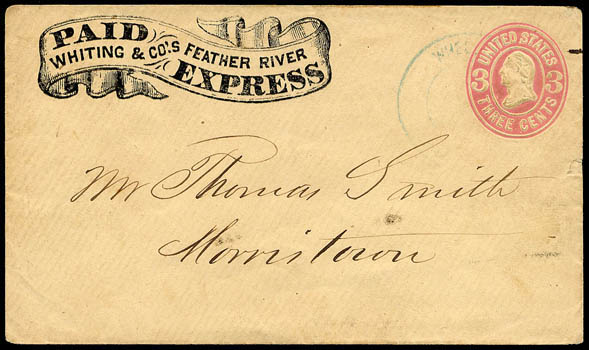 PAID
WHITING & CO'S FEATHER RIVER
EXPRESS
UNITED STATES
3 3
THREE CENTS
Mr Thomas Smith
Morristown